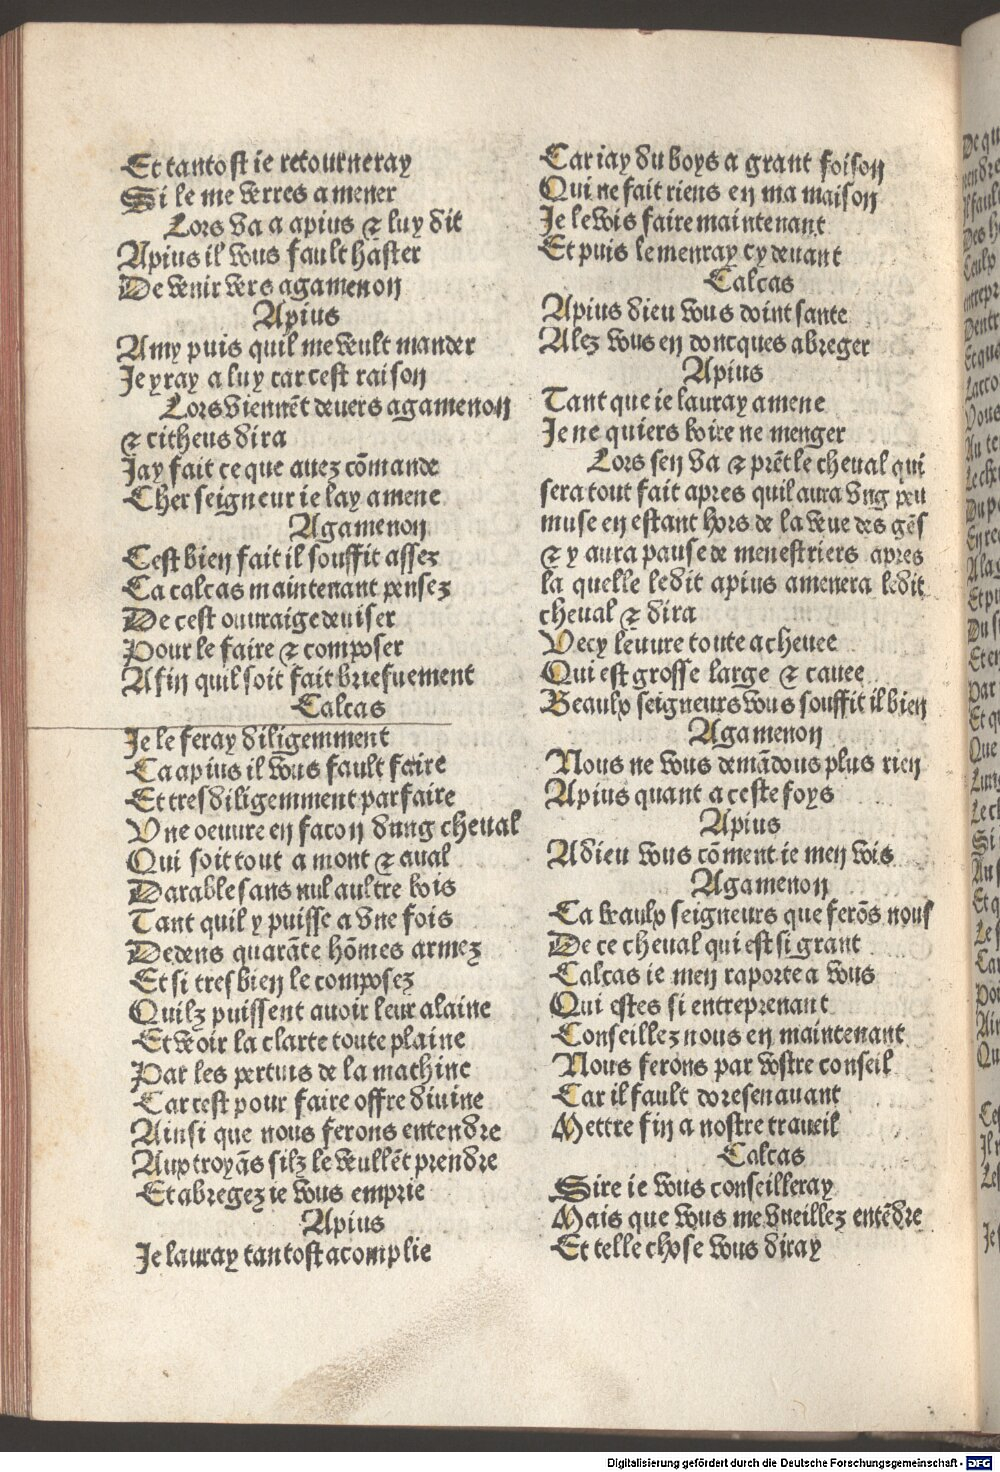 Et tantost ie retourneray
Si le me verres amener
Lors va a apius ⁊ luy dit
Apius il vous fault haster
De venir vers agamenon
Apius
Amy puis quil me veult mander
Je yray a luy car cest raison
Lors viennēt deuers agamenon
⁊ citheus dira
Jay fait ce que auez cōmande
Cher seigneur ie lay amene
Agamenon
Cest bien fait il souffit assez
Ca calcas maintenant pensez
De cest ouuraige deuiser
Pour le faire ⁊ composer
Afin quil soit fait briefuement
Calcas
Je le feray diligemment
Ca apius il vous fault faire
Et tresdiligemment parfaire
Vne oeuure en facon dung cheual
Qui soit tout a mont ⁊ aual
Darable sans nul aultre bois
Tant quil y puisse a vne fois
Dedens quarāte hōmes armez
Et si tres bien le composez
Quilz puissent auoir leur alaine
Et veoir la clarte toute plaine
Par les pertuis de la machine
Car cest pour faire offre diuine
Ainsi que nous ferons entendre
Aux troyās silz le veullēt prendre
Et abregez ie vous emprie
Apius
Je lauray tantost acomplie
Car iay du boys a grant foison
Qui ne fait riens en ma maison
Je le vois faire maintenant
Et puis le menray cy deuant
Calcas
Apius dieu vous doint sante
Alez vous en doncques abreger
Apius
Tant que ie lauray amene
Je ne quiers boire ne menger
Lors sen va ⁊ prēt le cheual qui
sera tout fait apres quil aura vng peu
muse en estant hors de la veue des gēs
⁊ y aura pause de menestriers apres
la quelle ledit apius amenera ledit
cheual ⁊ dira
Vecy leuure toute acheuee
Qui est grosse large ⁊ cauee
Beaulx seigneurs vous souffit il bien
Agamenon
Nous ne vous demādous plus rien
Apius quant a ceste foys
Apius
Adieu vous cōment ie men vois
Agamenon
Ca beaulx seigneurs que ferōs nous
De ce cheual qui est si grant
Calcas ie men raporte a vous
Qui estes si entreprenant
Conseillez nous en maintenant
Nous ferons par vostre conseil
Car il fault doresenauant
Mettre fin a nostre traueil
Calcas
Sire ie vous conseilleray
Mais que vous me vueillez entēdre
Et telle chose vous diray
Digitalisierung gefördert durch die Deutsche Forschungsgemeinschaft - DFG